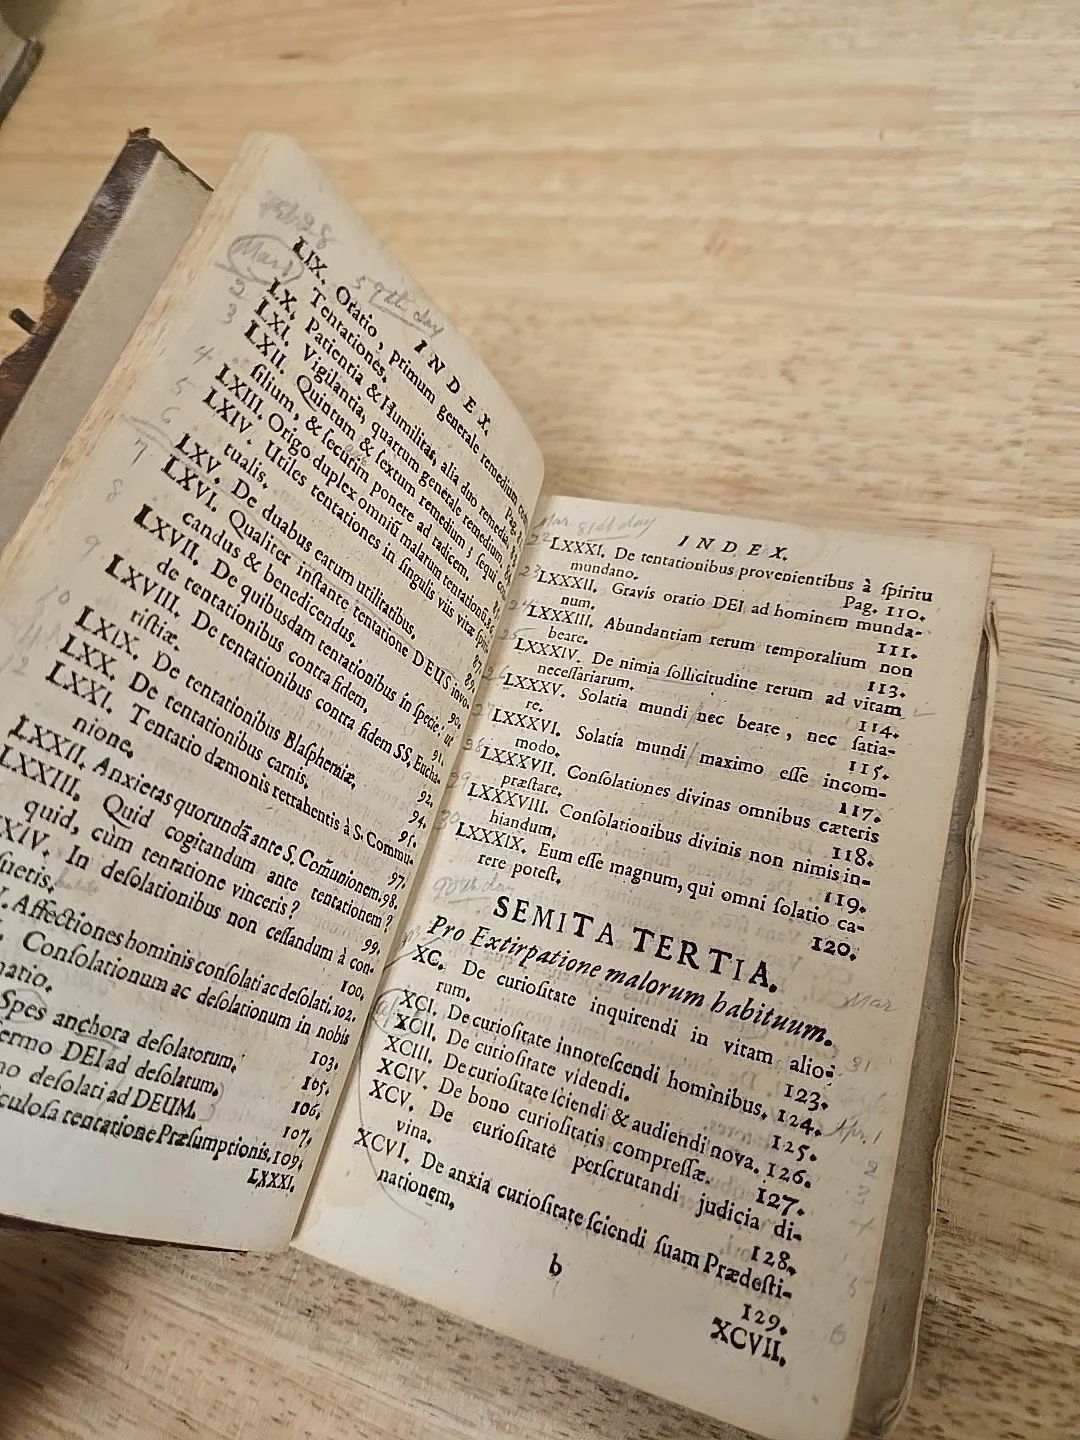 Feb. 28
59th day
INDEX.
Mar 1
LIX. Oratio, primum generale remedium
Tentationes.
2
LX. Patientia & Humilitas, alia duo remedia,
3
LXI. Vigilantia, quartum generale remedium,
4
LXII. Quintum & sextum remedium; sequi
silium, & securim ponere ad radicem.
5
LXIII. Origo duplex omniũ malarum tentationũ,
6
LXIV. Utiles tentationes in singulis viis vitæ
tualis. 87.
7
LXV. De duabus earum utilitatibus.
8
LXVI. Qualiter instante tentatione DEUS invo-
candus & benedicendus. 90.
9
LXVII. De quibusdam tentationibus in specie, ut
de tentationibus contra fidem. 91.
10
LXVIII. De tentationibus contra fidem SS. Eucha-
ristiæ. 92.
11
LXIX. De tentationibus Blasphemiæ. 94.
12
LXX. De tentationibus carnis. 95.
LXXI. Tentatio dæmonis retrahentis à S. Commu-
nione. 97.
LXXII. Anxietas quorundã ante S. Com̃unionem. 98.
LXXIII. Quid cogitandum ante tentationem?
quid, cùm tentatione vinceris? 99.
XIV. In desolationibus non cessandum à con-
suetis. 100.
Affectiones hominis consolati ac desolati. 102.
Consolationum ac desolationum in nobis
103.
Spes anchora desolatorum. 105.
ermo DEI ad desolatum. 106.
desolati ad DEUM. 107.
culosa tentatione Præsumptionis. 109.
LXXXI.
Mar 81st day
INDEX.
22
LXXXI. De tentationibus provenientibus à spiritu
mundano. Pag. 110.
23
LXXXII. Gravis oratio DEI ad hominem munda-
num. 111.
24
LXXXIII. Abundantiam rerum temporalium non
beare. 113.
25
LXXXIV. De nimia sollicitudine rerum ad vitam
necessariarum. 114.
LXXXV. Solatia mundi nec beare, nec satia-
re. 115.
LXXXVI. Solatia mundi maximo esse incom-
modo. 117.
LXXXVII. Consolationes divinas omnibus cæteris
præstare. 118.
29
LXXXVIII. Consolationibus divinis non nimis in-
hiandum. 119.
30
LXXXIX. Eum esse magnum, qui omni solatio ca-
rere potest. 120.
90th day
SEMITA TERTIA.
Pro Extirpatione malorum habituum.
Mar
XC. De curiositate inquirendi in vitam alio-
rum. 123.
31
XCI. De curiositate innotescendi hominibus. 124.
Apr. 1
XCII. De curiositate videndi. 125.
2
XCIII. De curiositate sciendi & audiendi nova. 126.
3
XCIV. De bono curiositatis compressæ. 127.
4
XCV. De curiositate perscrutandi judicia di-
vina. 128.
5
XCVI. De anxia curiositate sciendi suam Prædesti-
nationem. 129.
6
b
XCVII.